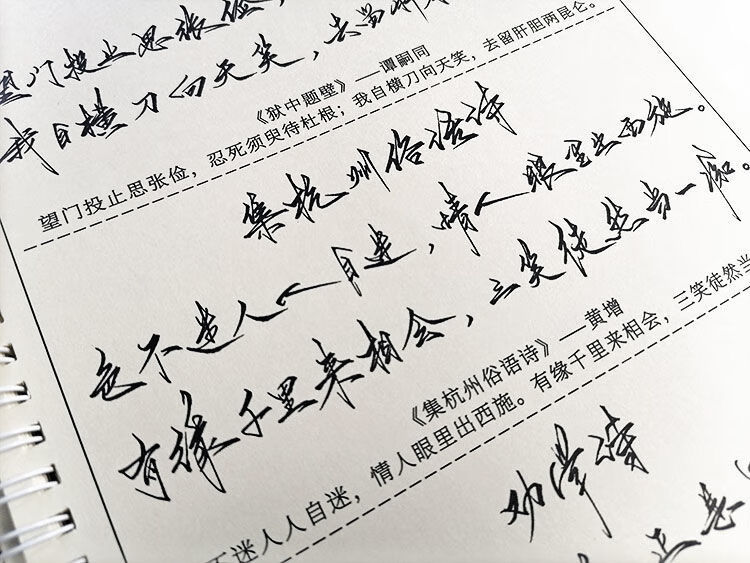 望门投止思张俭，
我自横刀向天笑，去留肝胆
《狱中题壁》——谭嗣同
望门投止思张俭，忍死须臾待杜根；我自横刀向天笑，去留肝胆两昆仑。
集杭州俗语诗
色不迷人人自迷，情人眼里出西施。
有缘千里来相会，三笑徒然当一痴。
《集杭州俗语诗》——黄增
不迷人人自迷，情人眼里出西施。有缘千里来相会，三笑徒然当
劝学诗